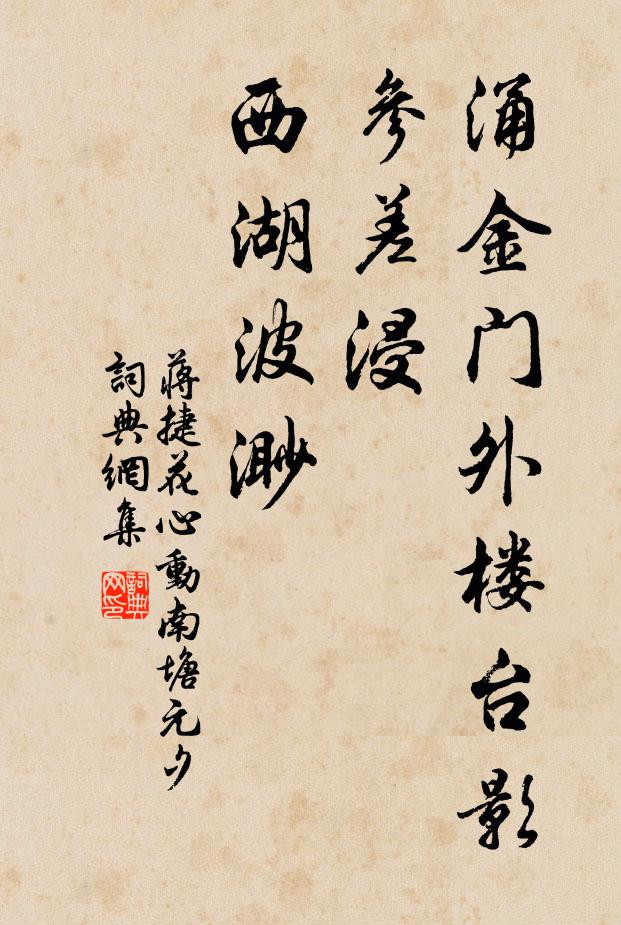 涌金门外楼台影
参差浸
西湖波渺
蒋捷花心動南塘元夕
詞典網集
詞典网印